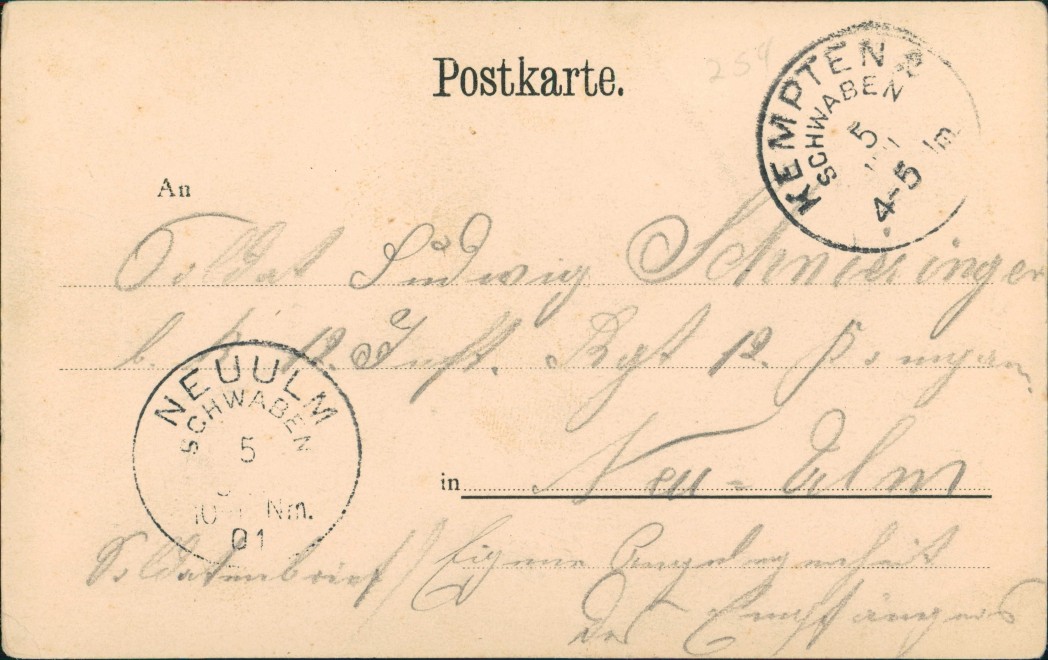 Postkarte.
259
KEMPTEN 2
SCHWABEN
5
4-5
An
Soldat Ludwig Schneisinger
b. k. 12. Inft. Rgt 12. Kompan.
NEUULM
SCHWABEN
5
10 Nm.
01
in Neu-Ulm
Soldatenbrief // Eigene Angelegenheit
des Empfängers